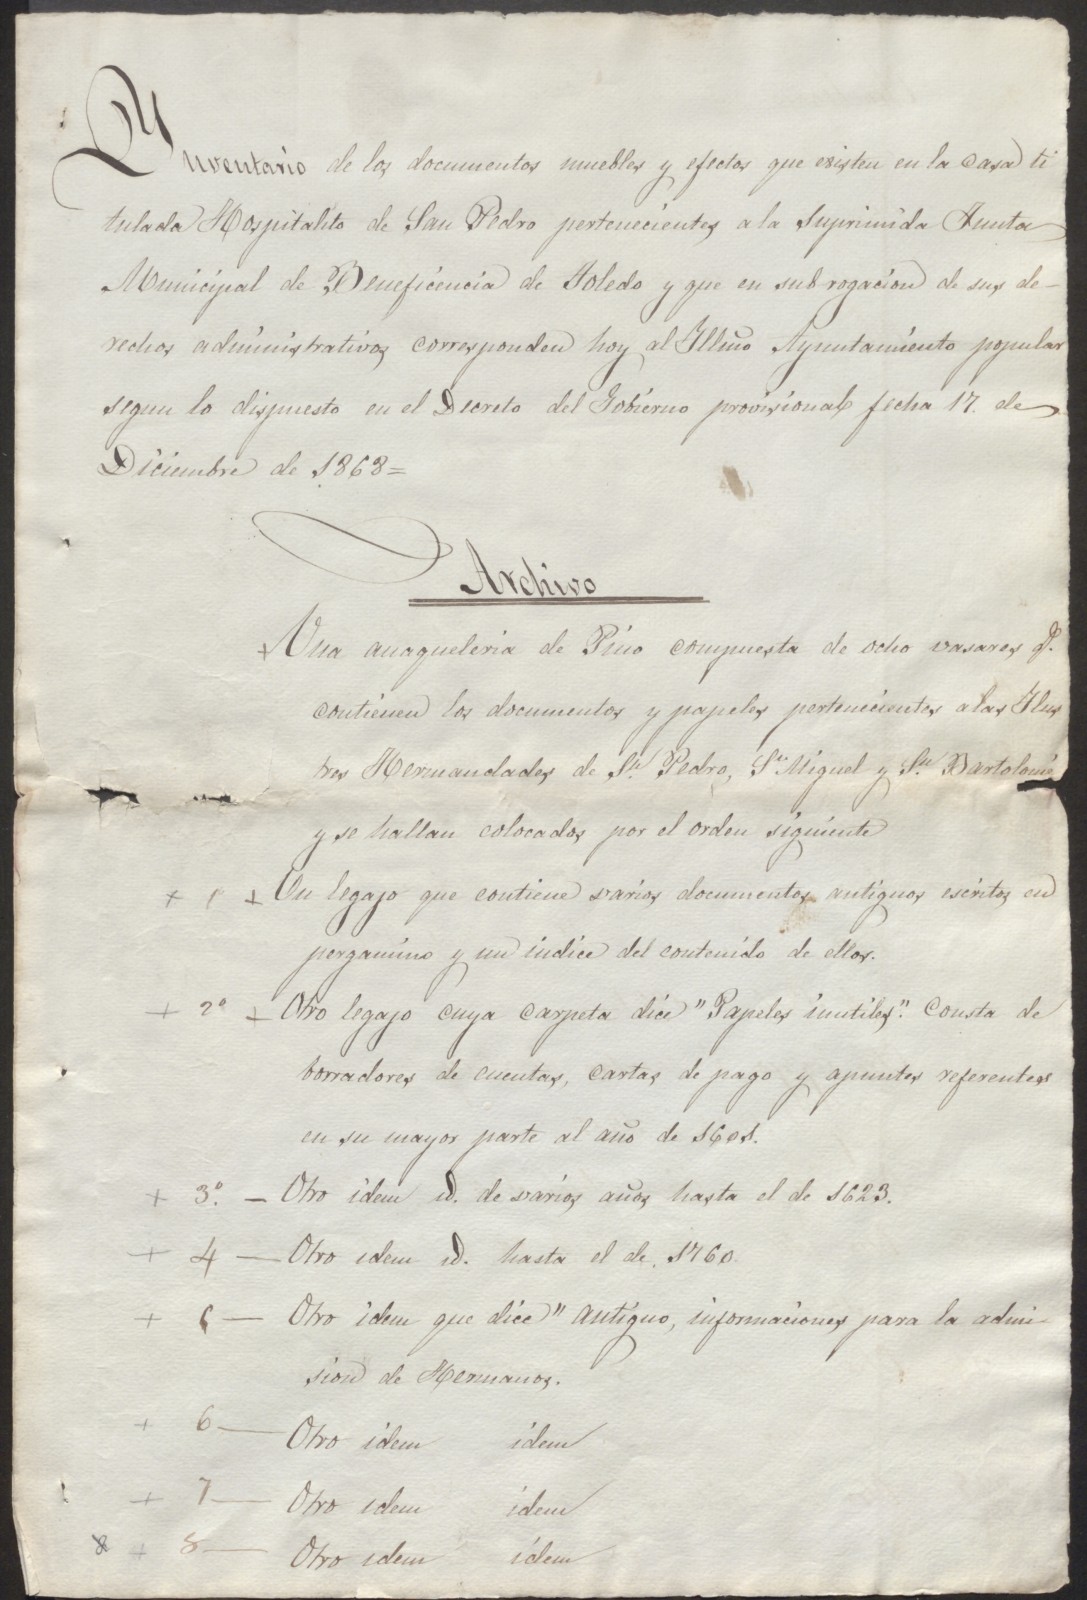 Ynventario de los documentos muebles y efectos que existen en la casa ti
tulada Hospitalito de San Pedro pertenecientes a la Suprimida Junta
Municipal de Beneficencia de Toledo y que en subrogacion de sus de-
rechos administrativos corresponden hoy al Illmo Ayuntamiento popular
segun lo dispuesto en el Decreto del Gobierno provisional fecha 17. de
Diciembre de 1868=
Archivo
+ Una anaqueleria de Pino compuesta de ocho vasares q.
contienen los documentos y papeles pertenecientes a las Ilus
tres Hermandades de Sn. Pedro, Sn. Miguel y Sn. Bartolomé
y se hallan colocados por el orden siguiente
+ 1 + Un legajo que contiene varios documentos antiguos escritos en
pergamino y un indice del contenido de ellos.
+ 2º + Otro legajo cuya carpeta dice "Papeles inutiles". Consta de
borradores de cuentas, cartas de pago y apuntes referentes
en su mayor parte al año de 1601.
+ 3º. — Otro idem id. de varios años hasta el de 1623.
+ 4 — Otro idem id. hasta el de 1760.
+ 5 — Otro idem que dice" Antiguo, informaciones para la admi-
sion de Hermanos.
+ 6 — Otro idem idem
+ 7 — Otro idem idem
+ 8 — Otro idem idem